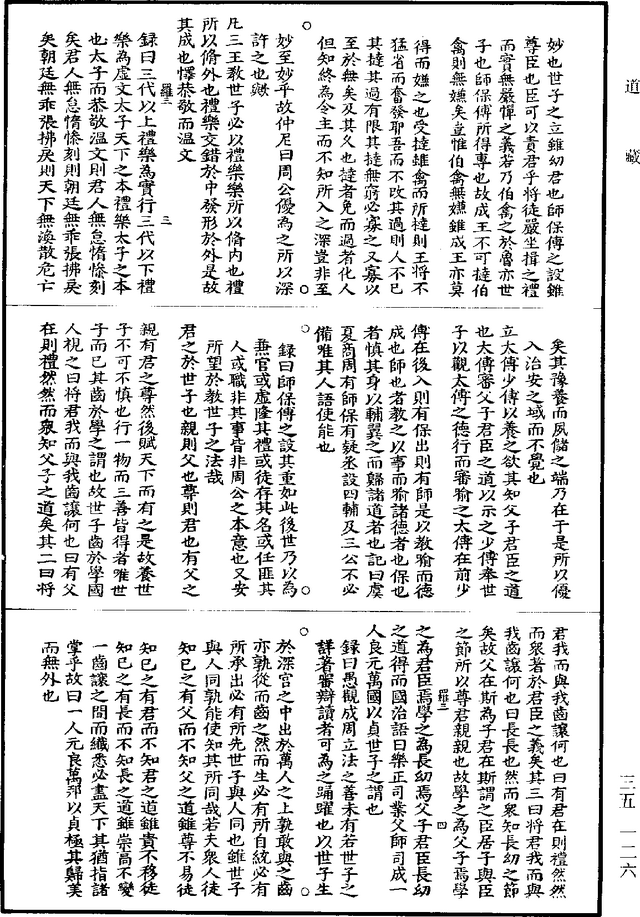 道藏
妙也世子之立雖幼君也師保傅之設雖
尊臣也臣可以責君乎將徒嚴坐揖之禮
而實無嚴憚之義若乃伯禽之於魯亦世
子也師保傅所得專也故成王不可撻伯
禽則無嫌矣豈惟伯禽無嫌雖成王亦莫
得而嫌之也受撻雖禽而所撻則王將不
猛省而奮發耶吾而不改其過則人不已
其撻其過有限其撻無窮必寡之又寡以
至於無矣及其久也撻者免而過者化人
但知終為令主而不知所入之深豈非至
妙至妙乎故仲尼曰周公優為之所以深
許之也歟
凡三王教世子必以禮樂樂所以脩內也禮
所以脩外也禮樂交錯於中發形於外是故
其成也懌恭敬而溫文
羅三 三
錄曰三代以上禮樂為實行三代以下禮
樂為虛文太子天下之本禮樂太子之本
也太子而恭敬溫文則君人無怠惰慘刻
矣君人無怠惰慘刻則朝廷無乖張拂戾
矣朝廷無乖張拂戾則天下無渙散危亡
矣其豫養而夙儲之端乃在于是所以優
入治安之域而不覺也
立太傅少傅以養之欲其知父子君臣之道
也太傅審父子君臣之道以示之少傅奉世
子以觀太傅之德行而審喻之太傅在前少
傅在後入則有保出則有師是以教喻而德
成也師也者教之以事而喻諸德者也保也
者慎其身以輔翼之而歸諸道者也記曰虞
夏商周有師保有疑丞設四輔及三公不必
備唯其人語使能也
錄曰師保傅之設其重如此後世乃以為
兼官或虛隆其禮或徒存其名或任匪其
人或職非其事皆非周公之本意也又安
所望於教世子之法哉
君之於世子也親則父也尊則君也有父之
親有君之尊然後兼天下而有之是故養世
子不可不慎也行一物而三善皆得者唯世
子而已其齒於學之謂也故世子齒於學國
人視之曰將君我而與我齒讓何也曰有父
在則禮然然而衆知父子之道矣其二曰將
君我而與我齒讓何也曰有君在則禮然然
而衆著於君臣之義矣其三曰將君我而與
我齒讓何也曰長長也然而衆知長幼之節
矣故父在斯為子君在斯謂之臣居子與臣
之節所以尊君親親也故學之為父子焉學
羅三 四
之為君臣焉學之為長幼焉父子君臣長幼
之道得而國治語曰樂正司業父師司成一
人良元萬國以貞世子之謂也
錄曰愚觀成周立法之善未有若世子之
詳著審辯讀者可為之踊躍也以世子生
於深宮之中出於萬人之上孰敢與之齒
亦孰從而齒之然而生必有所自統必有
所承出必有所先世子與人同也雖世子
與人同孰能使知其所同哉若夫衆人徒
知己之有父而不知父之道雖尊不易徒
知己之有君而不知君之道雖貴不移徒
知己之有長而不知長之道雖崇高不變
一齒讓之間而纖悉必盡天下其猶指諸
掌乎故曰一人元良萬邦以貞極其歸美
而無外也
三五 一二六